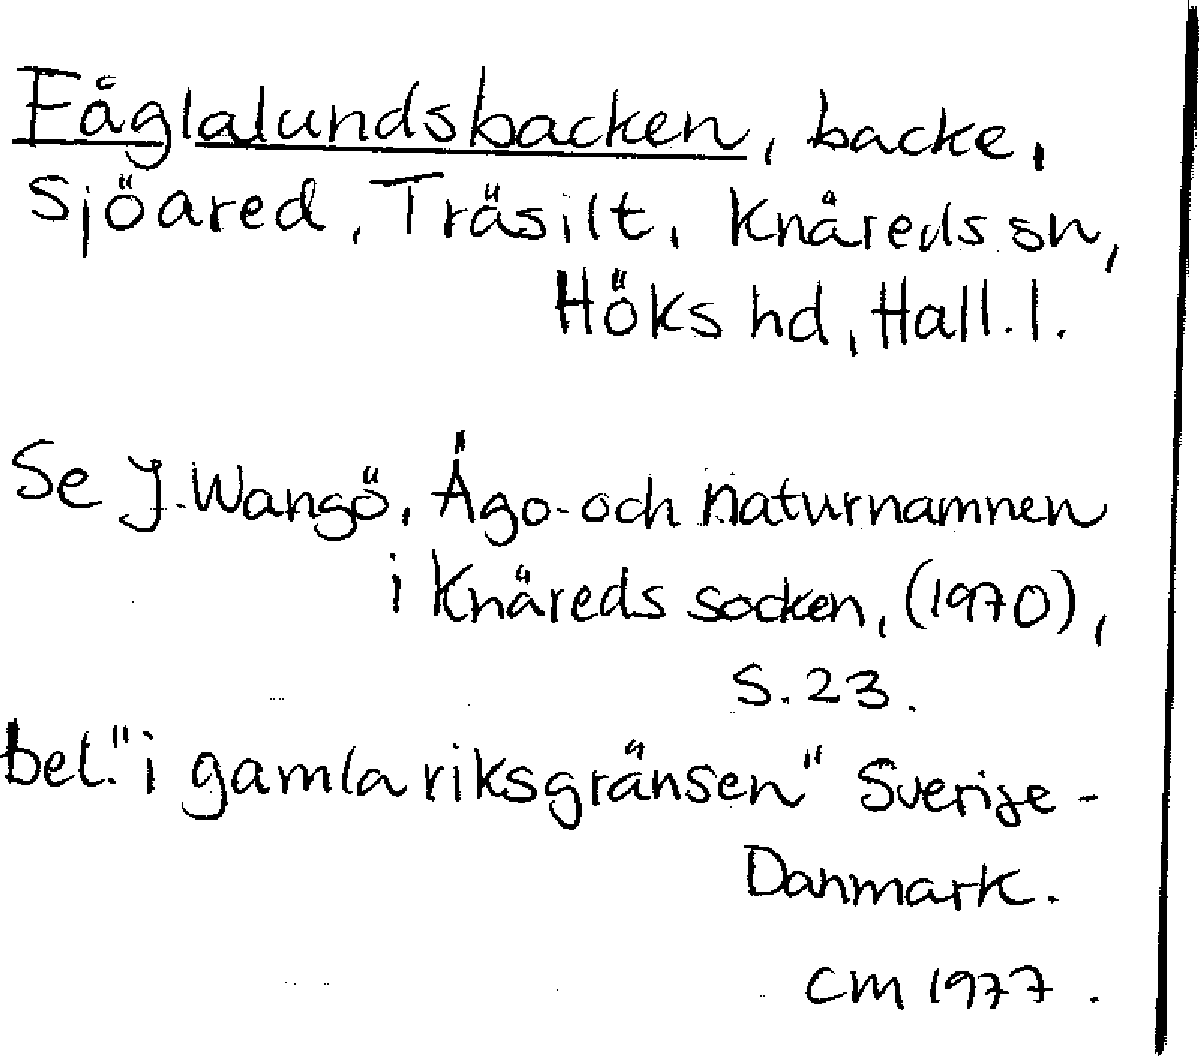 Fåglalundsbacken, backe,
Sjöared, Träsilt, Knäreds sn,
Höks hd, Hall. l.
Se J. Wangö, Ägo- och naturnamnen
i Knäreds socken, (1970),
s. 23.
bel. "i gamla riksgränsen" Sverige -
Danmark.
CM 1977.